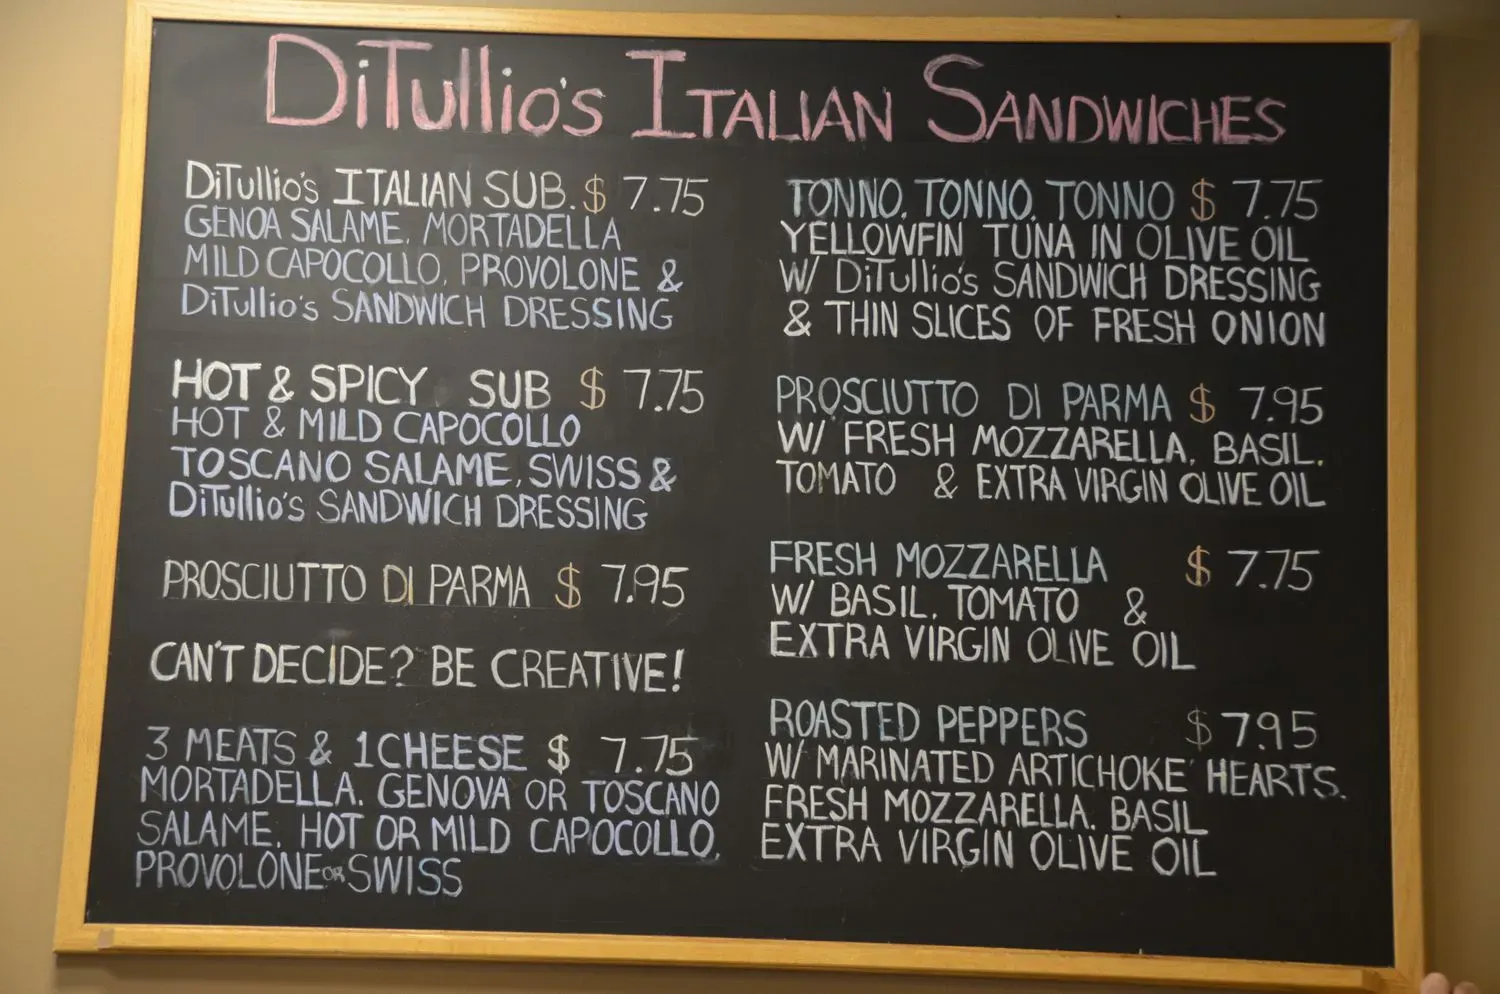 DiTullio's ITALIAN SANDWICHES
DiTullio's ITALIAN SUB. $ 7.75
GENOA SALAME, MORTADELLA
MILD CAPOCOLLO, PROVOLONE &
DiTullio's SANDWICH DRESSING
HOT & SPICY SUB $ 7.75
HOT & MILD CAPOCOLLO
TOSCANO SALAME, SWISS &
DiTullio's SANDWICH DRESSING
PROSCIUTTO DI PARMA $ 7.95
CAN'T DECIDE? BE CREATIVE!
3 MEATS & 1 CHEESE $ 7.75
MORTADELLA, GENOVA OR TOSCANO
SALAME, HOT OR MILD CAPOCOLLO,
PROVOLONE OR SWISS
TONNO, TONNO, TONNO $ 7.75
YELLOWFIN TUNA IN OLIVE OIL
W/ DiTullio's SANDWICH DRESSING
& THIN SLICES OF FRESH ONION
PROSCIUTTO DI PARMA $ 7.95
W/ FRESH MOZZARELLA, BASIL,
TOMATO & EXTRA VIRGIN OLIVE OIL
FRESH MOZZARELLA $ 7.75
W/ BASIL, TOMATO &
EXTRA VIRGIN OLIVE OIL
ROASTED PEPPERS $ 7.95
W/ MARINATED ARTICHOKE HEARTS,
FRESH MOZZARELLA, BASIL
EXTRA VIRGIN OLIVE OIL